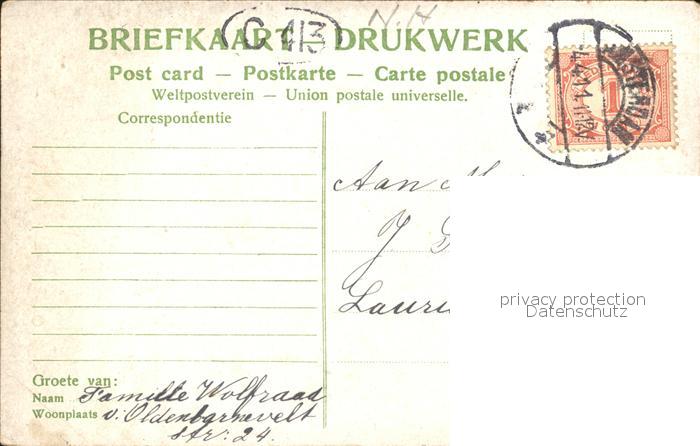 N.H
C 413
BRIEFKAART DRUKWERK
Post card — Postkarte — Carte postale
Weltpostverein — Union postale universelle.
Correspondentie
AMSTERDAM
1
Aan
J
Lauri
privacy protection
Datenschutz
Groete van:
Naam Familie Wolfraad
Woonplaats v. Oldenbarnevelt
str: 24.